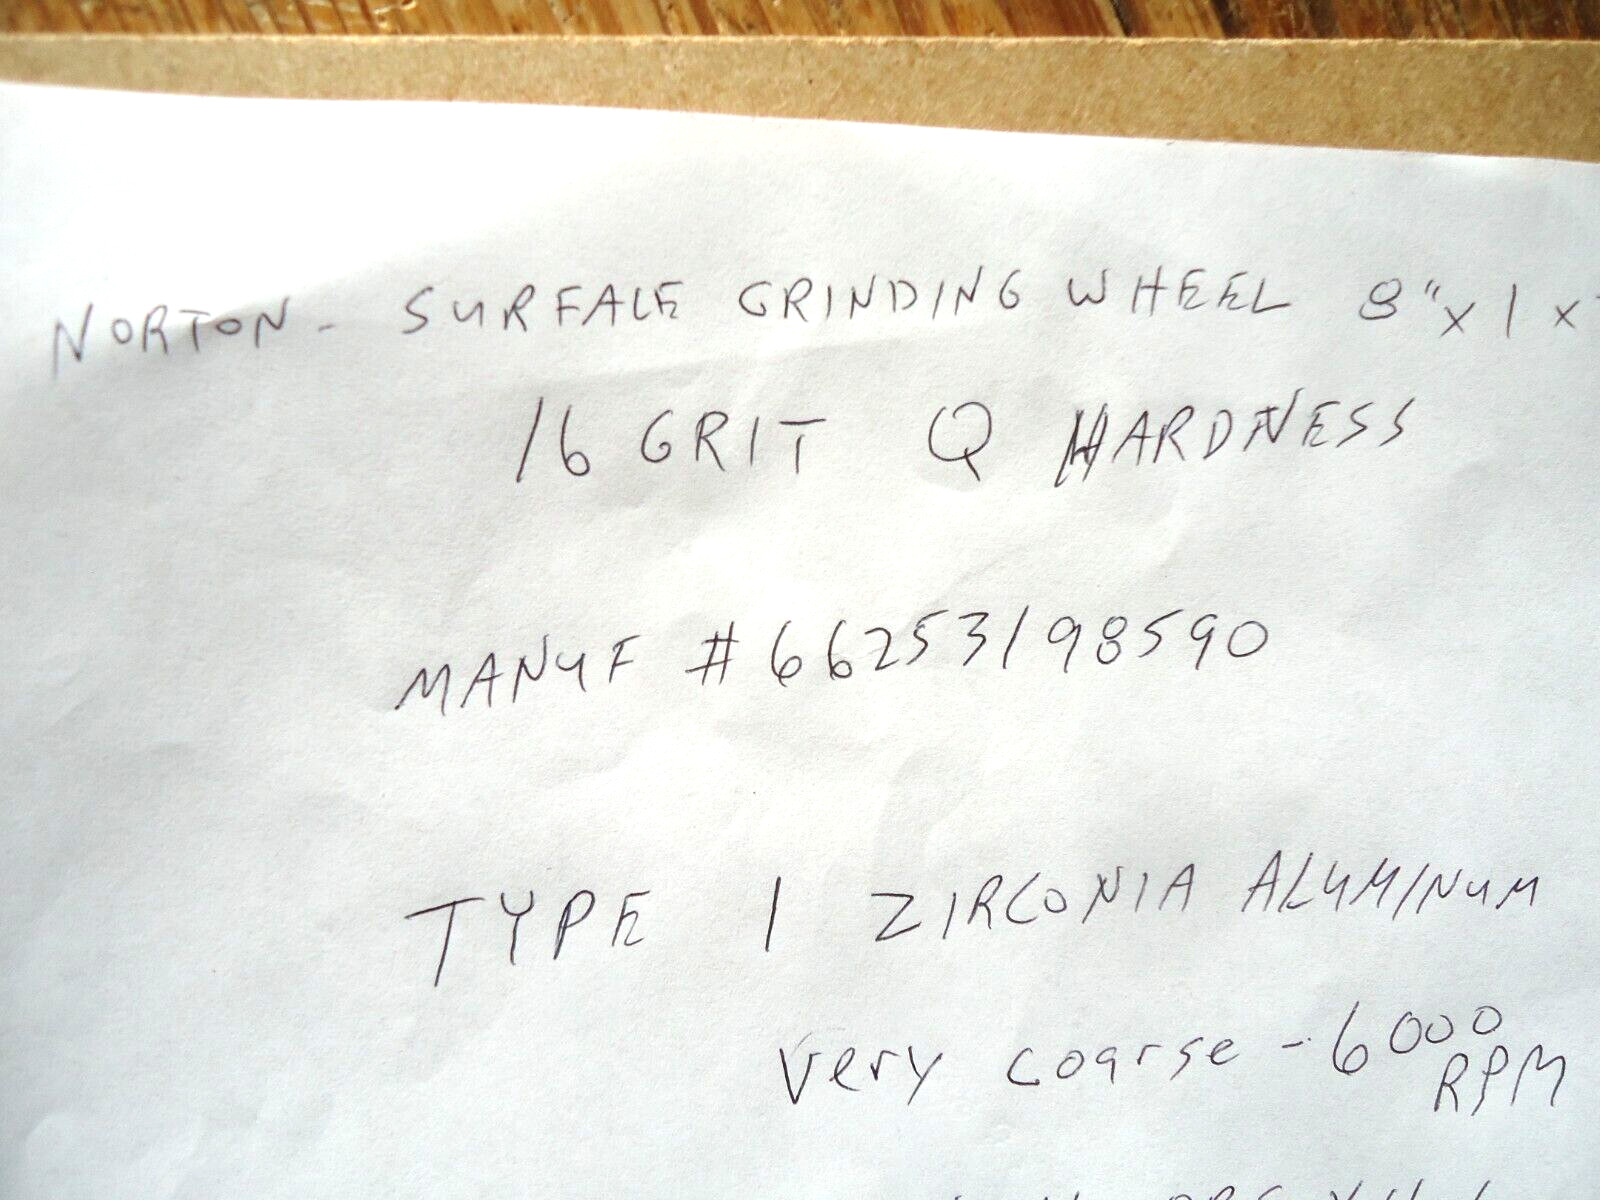 NORTON - SURFACE GRINDING WHEEL 8" x 1 x
16 GRIT Q HARDNESS
MANUF #66253198590
TYPE 1 ZIRCONIA ALUMINUM
Very coarse - 6000
RPM